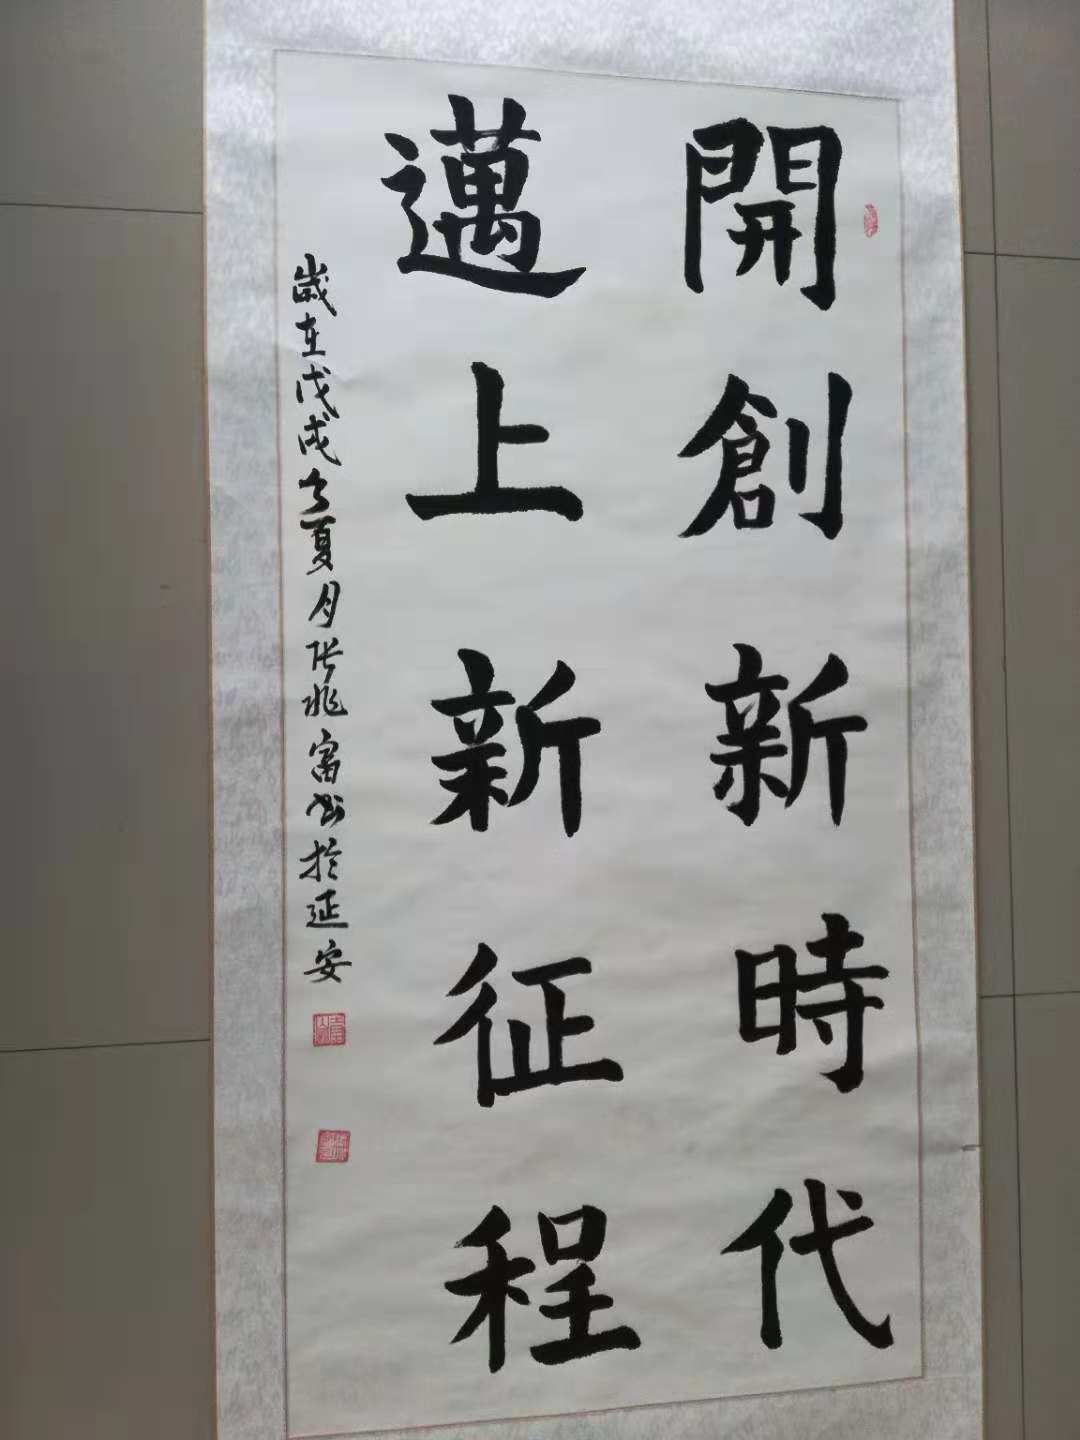 開創新時代
邁上新征程
歲在戊戌年夏月張兆富書於延安